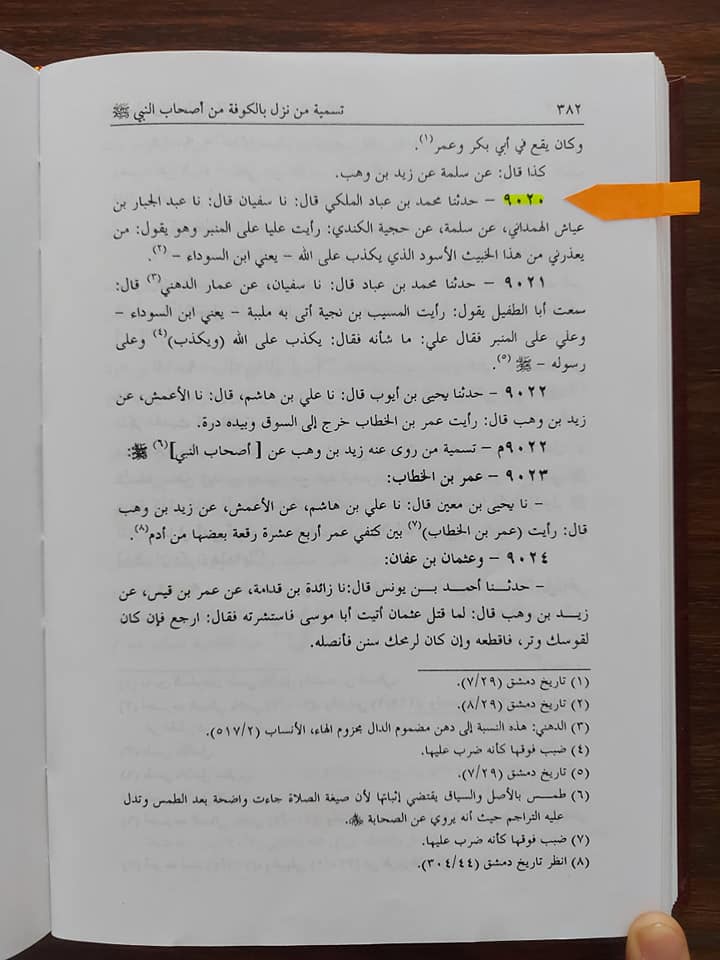 ٣٨٢ تسمية من نزل بالكوفة من أصحاب النبي ﷺ
وكان يقع في أبي بكر وعمر(١).
كذا قال: عن سلمة عن زيد بن وهب.
٩٠٢٠ – حدثنا محمد بن عباد الملكي قال: نا سفيان قال: نا عبد الجبار بن
عياش الهمداني، عن سلمة، عن حجية الكندي: رأيت عليا على المنبر وهو يقول: من
يعذرني من هذا الخبيث الأسود الذي يكذب على الله – يعني ابن السوداء –(٢).
٩٠٢١ – حدثنا محمد بن عباد قال: نا سفيان، عن عمار الدهني(٣) قال:
سمعت أبا الطفيل يقول: رأيت المسيب بن نجية أتى به ملببة – يعني ابن السوداء –
وعلي على المنبر فقال علي: ما شأنه فقال: يكذب على الله (ويكذب)(٤) وعلى
رسوله – ﷺ(٥).
٩٠٢٢ – حدثنا يحيى بن أيوب قال: نا علي بن هاشم، قال: نا الأعمش، عن
زيد بن وهب قال: رأيت عمر بن الخطاب خرج إلى السوق وبيده درة.
٩٠٢٢م – تسمية من روى عنه زيد بن وهب عن [ أصحاب النبي](٦) ﷺ:
٩٠٢٣ – عمر بن الخطاب:
– نا يحيى بن معين قال: نا علي بن هاشم، عن الأعمش، عن زيد بن وهب
قال: رأيت (عمر بن الخطاب)(٧) بين كتفي عمر أربع عشرة رقعة بعضها من أدم(٨).
٩٠٢٤ – وعثمان بن عفان:
– حدثنا أحمد بن يونس قال:نا زائدة بن قدامة، عن عمر بن قيس، عن
زيد بن وهب قال: لما قتل عثمان أتيت أبا موسى فاستشرته فقال: ارجع فإن كان
لقوسك وتر، فاقطعه وإن كان لرمحك سنن فأنصله.
(١) تاريخ دمشق (٧/٢٩).
(٢) تاريخ دمشق (٨/٢٩).
(٣) الدهني: هذه النسبة إلى دهن مضموم الدال بجزوم الهاء، الأنساب (٥١٧/٢).
(٤) ضبب فوقها كأنه ضرب عليها.
(٥) تاريخ دمشق (٧/٢٩).
(٦) طمس بالأصل والسياق يقتضي إثباتها لأن صيغة الصلاة جاءت واضحة بعد الطمس وتدل
عليه التراجم حيث أنه يروي عن الصحابة ﷺ.
(٧) ضبب فوقها كأنه ضرب عليها.
(٨) انظر تاريخ دمشق (٣٠٤/٤٤).